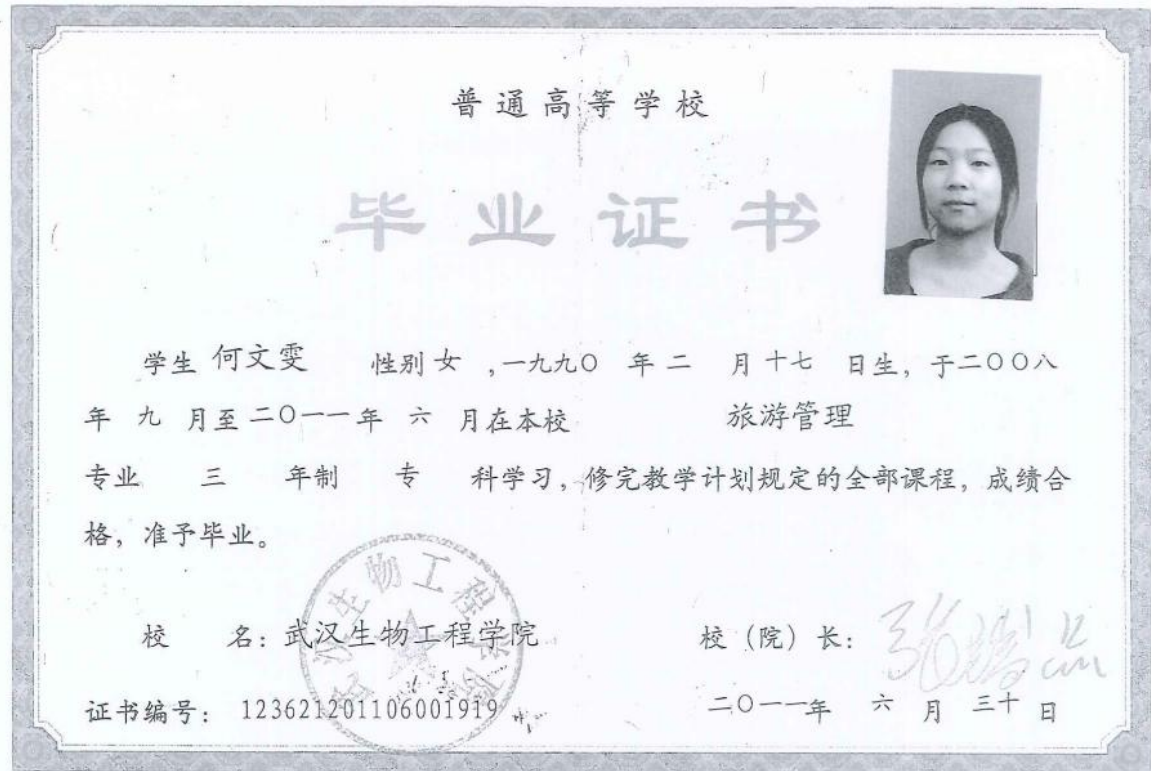 普通高等学校
毕业证书
学生 何文雯 性别 女 ,一九九〇 年 二 月 十七 日生, 于二〇〇八
年 九 月至 二〇一一年 六 月在本校 旅游管理
专业 三 年制 专 科学习, 修完教学计划规定的全部课程, 成绩合
格, 准予毕业。
武汉生物工程学院
校 名: 武汉生物工程学院 校 (院) 长:
证书编号: 123621201106001919 二〇一一年 六 月 三十 日